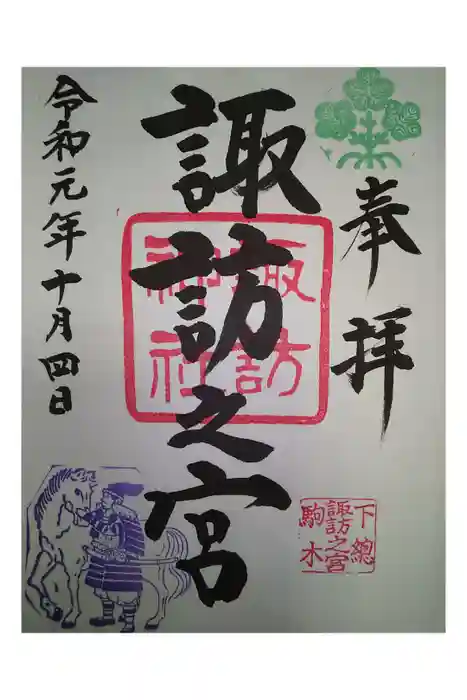 奉拝
諏訪之宮
諏訪
神社
令和元年十月四日
下總
諏訪之宮
駒木